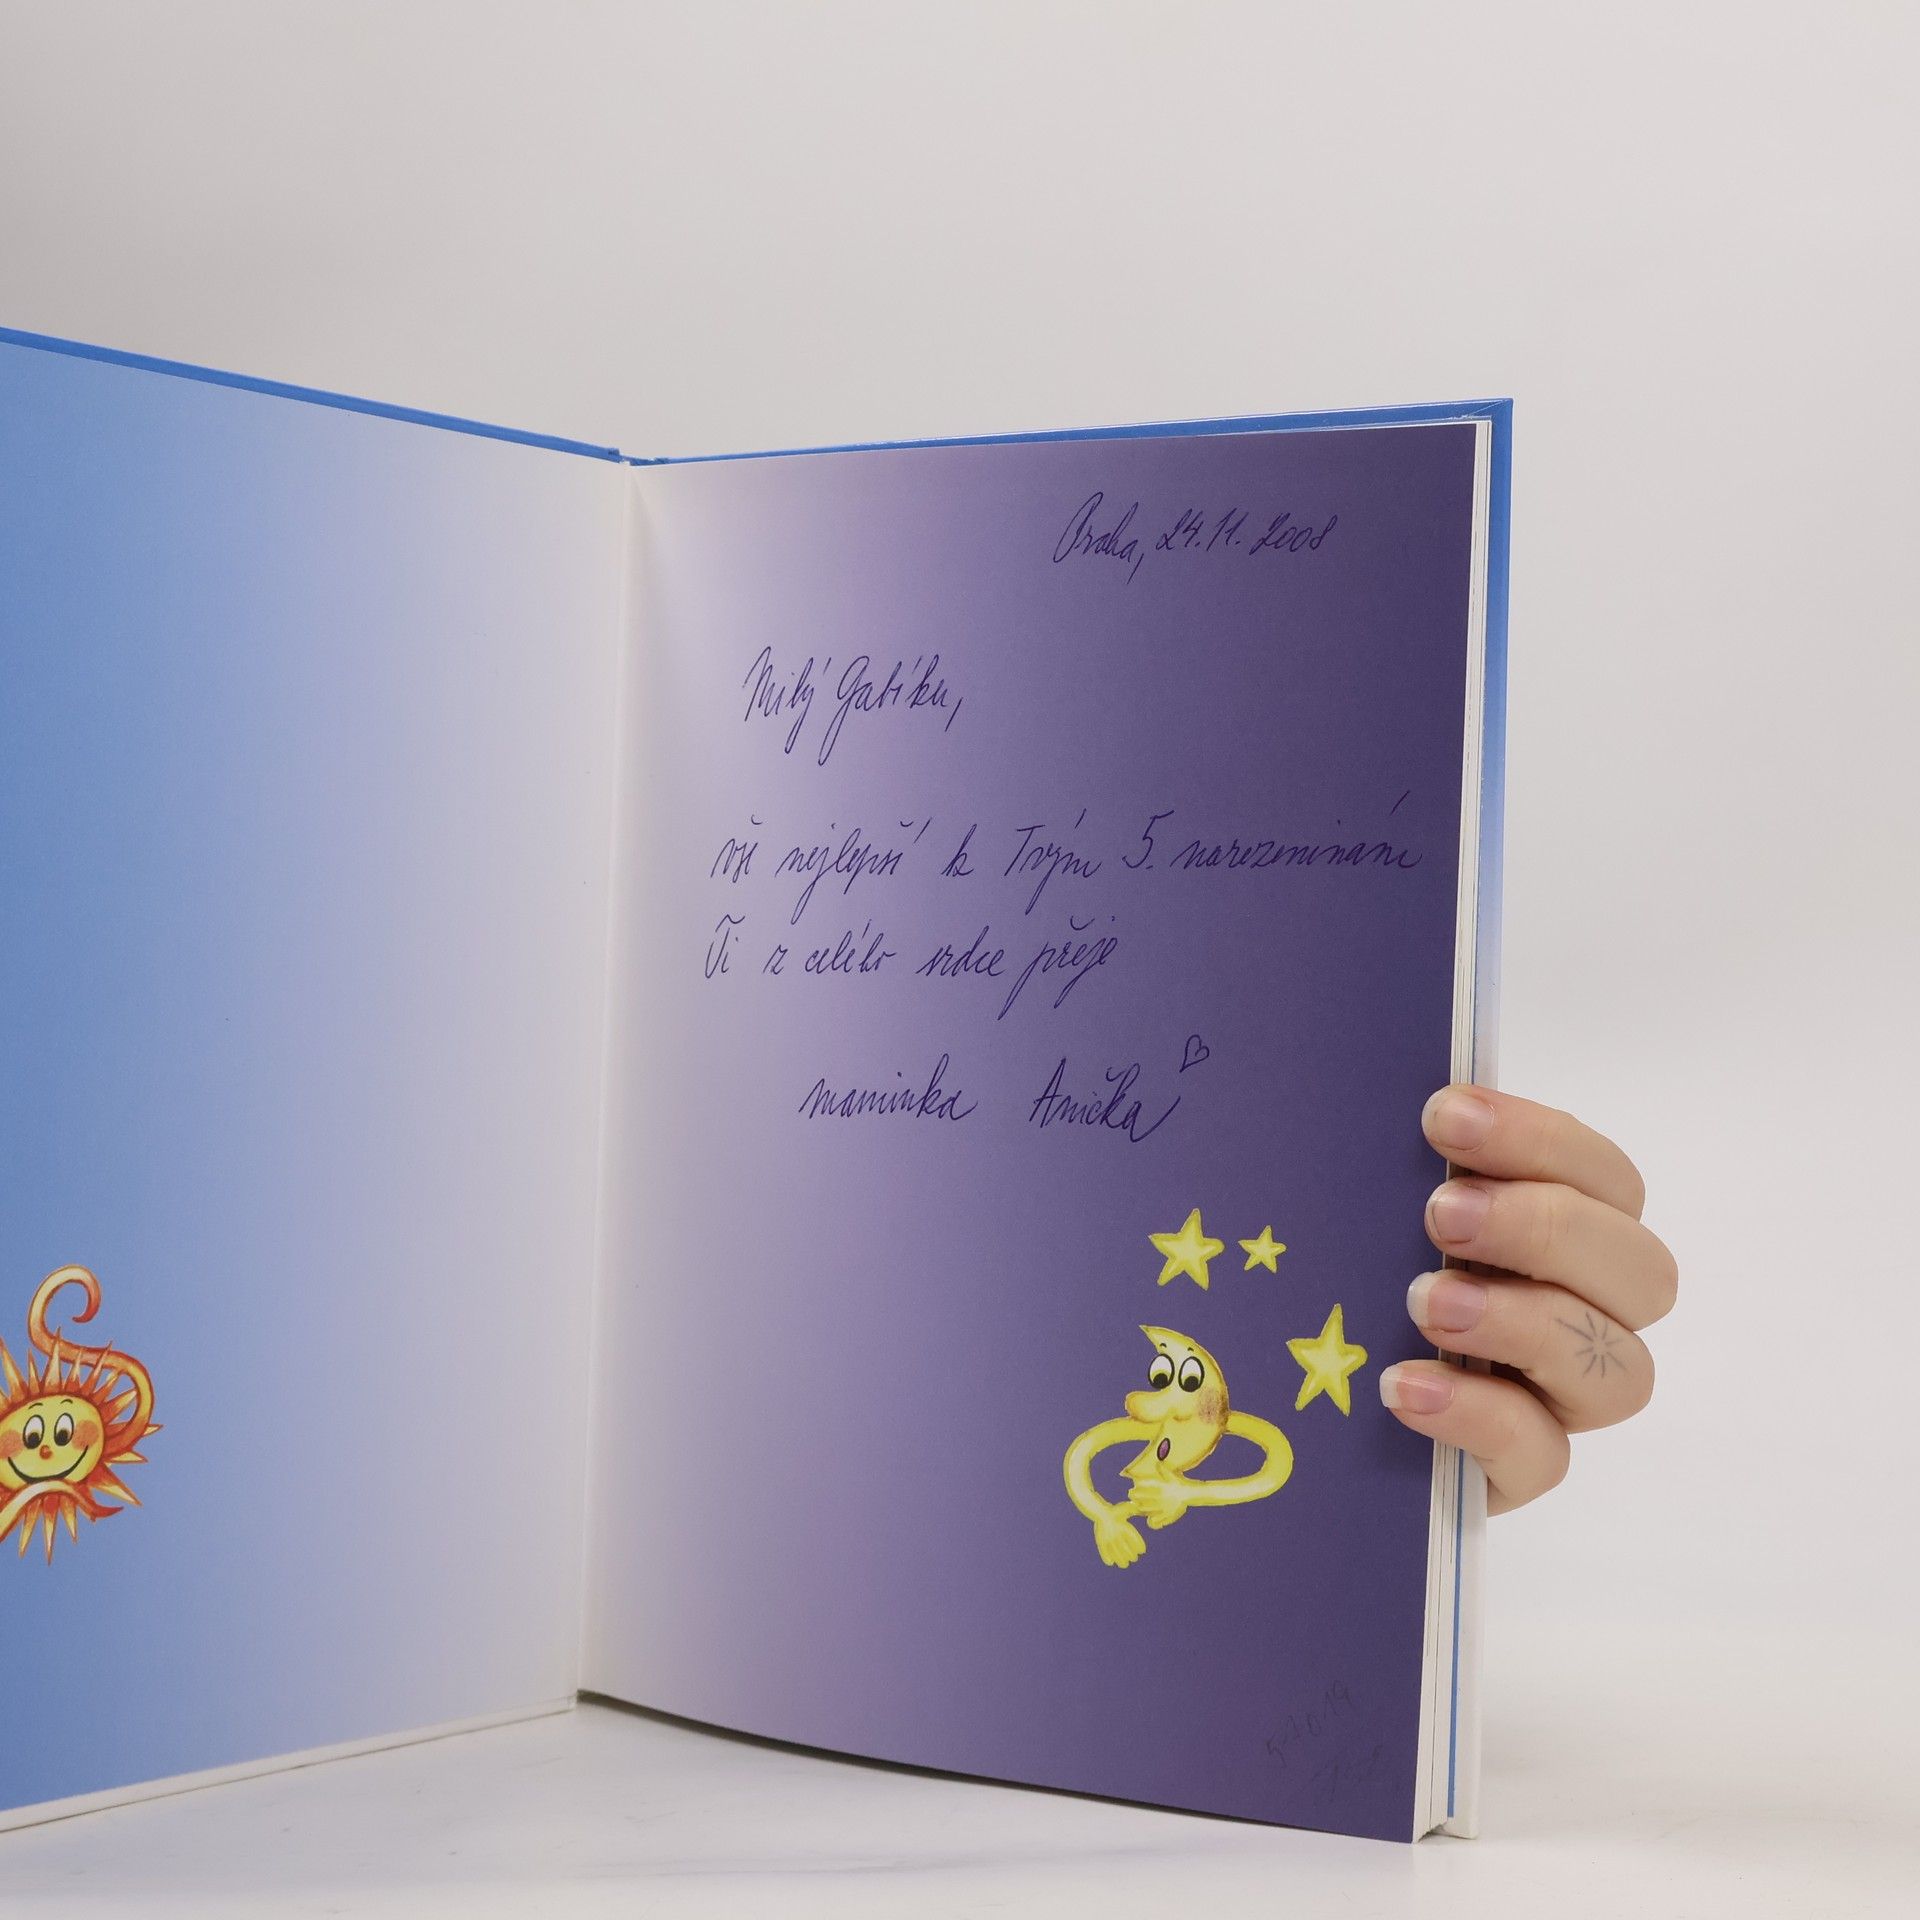 Praha, 24.11.2008
Milý Gabíku,
vše nejlepší k Tvým 5. narozeninám
Ti z celého srdce přeje
maminka Anička